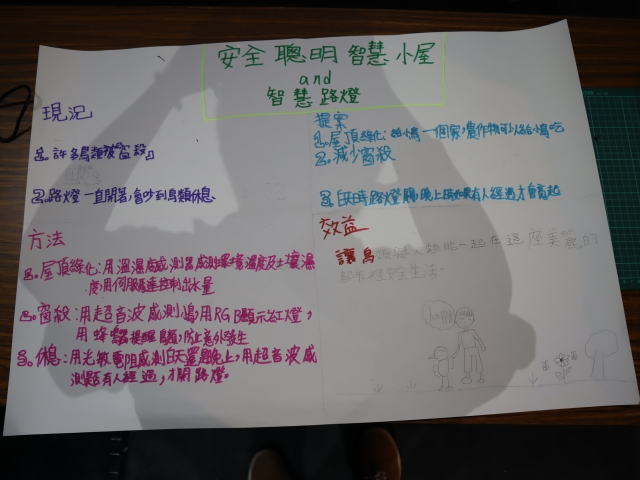 安全聰明智慧小屋
and
智慧路燈
現況
1. 許多鳥類被『窗殺』
2. 路燈一直開著,會吵到鳥類休息
提案
1. 屋頂綠化:給鳥一個家,農作物可以給鳥吃
2. 減少窗殺
3. 白天時路燈關,晚上時如果有人經過才會亮起
方法
1. 屋頂綠化:用溫濕度感測器感測環境溫度及土壤濕
度,用伺服馬達控制出水量
2. 窗殺:用超音波感測鳥,用RGB顯示紅燈,
用蜂鳴器提醒鳥類,防止意外發生
3. 休息:用光敏電阻感測白天還是晚上,用超音波感
測是否有人經過,才開路燈。
效益
讓鳥類與人類能一起在這座美麗的
都市裡安全生活。